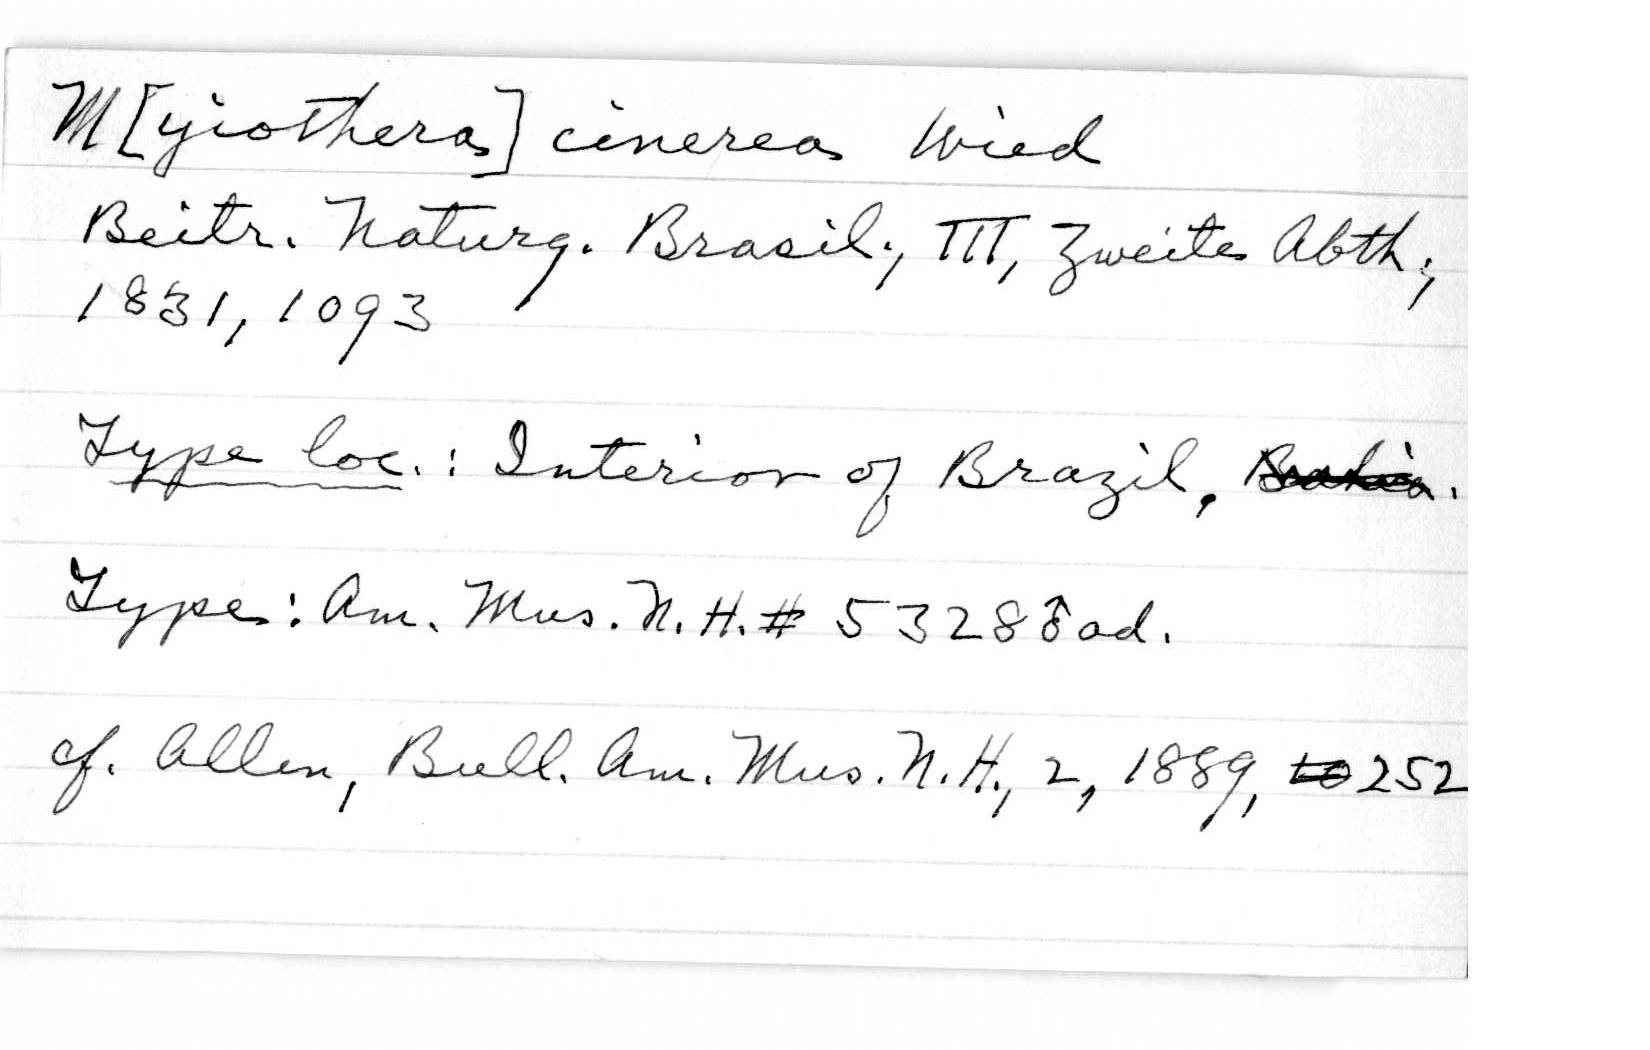 M[yiothera] cinerea Wied
Beitr. Naturg. Brasil., III, Zweite Abth.,
1831, 1093
Type loc.: Interior of Brazil, Bahia.
Type: Am. Mus. N. H. # 5328 ♂ ad.
cf. Allen, Bull. Am. Mus. N. H., 2, 1889, 252